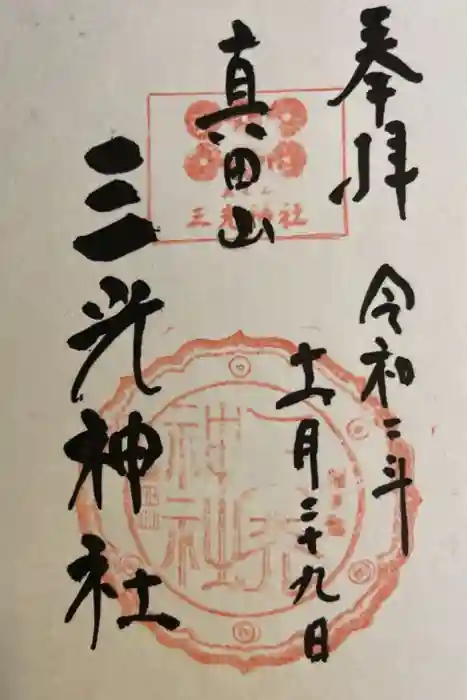 奉拝
令和二年
十一月二十九日
真田山
三光神社
三光神社